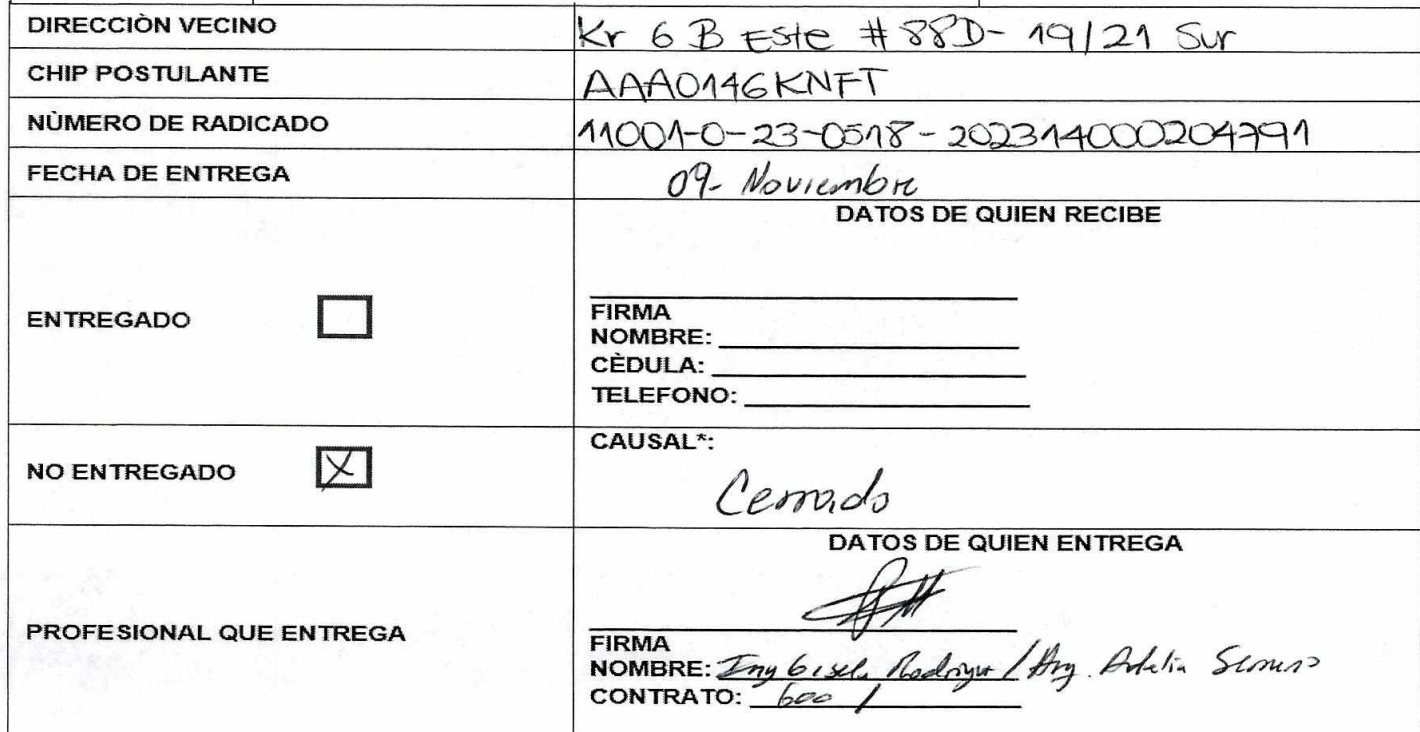 DIRECCIÒN VECINO Kr 6 B Este # 88D- 19/21 Sur
CHIP POSTULANTE AAA0146KNFT
NÙMERO DE RADICADO 11001-0-23-0518-20231400204791
FECHA DE ENTREGA 09- Noviembre
DATOS DE QUIEN RECIBE
ENTREGADO
FIRMA
NOMBRE:
CÈDULA:
TELEFONO:
NO ENTREGADO X
CAUSAL*:
Cerrado
DATOS DE QUIEN ENTREGA
PROFESIONAL QUE ENTREGA
FIRMA
NOMBRE: Ing Gisela Rodrigue / Arq. Adalia
CONTRATO: 600 /